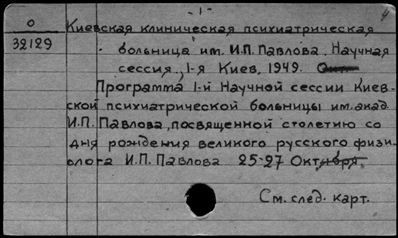 - 1 -
4
О
32129
Киевская клиническая психиатрическая
больница им. И.П. Павлова. Научная
сессия, 1-я Киев, 1949.
Программа 1-й Научной сессии Киев-
ской психиатрической больницы им. акад.
И.П. Павлова, посвященной столетию со
дня рождения великого русского физи-
олога И.П. Павлова 25-27 Октября.
См. след. карт.